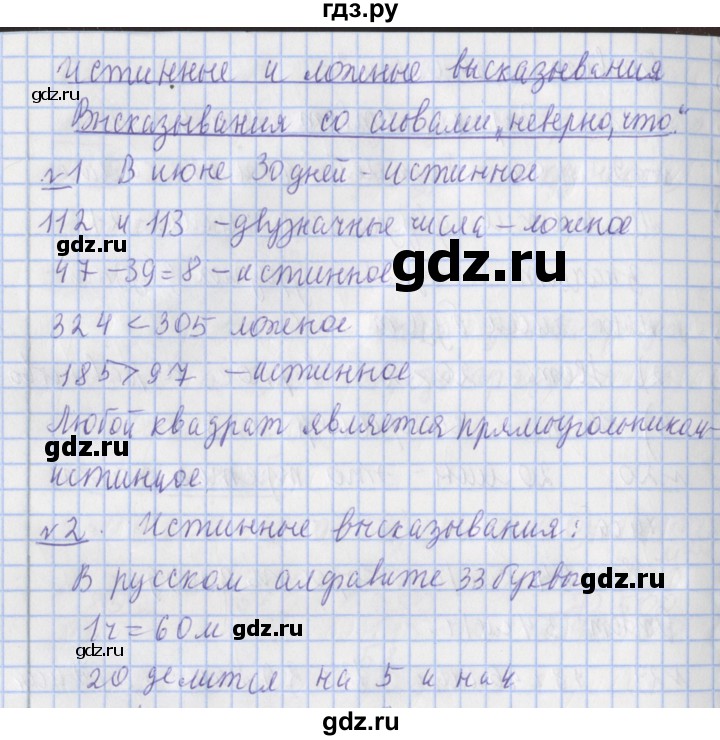 гдз.ру
Истинные и ложные высказывания
gdz.ru
Высказывания со словами „неверно, что."
№1 В июне 30 дней - истинное
112 и 113 - двузначные числа - ложное
gdz.ru
gdz.ru
47 - 39 = 8 - истинное
324 < 305 ложное
185 > 97 - истинное
Любой квадрат является прямоугольником -
gdz.ru
истинное.
gdz.ru
№2. Истинные высказывания:
В русском алфавите 33 буквы
gdz.ru
1ч = 60м
gdz.ru
gdz.ru
20 делится на 5 и на 4
gdz.ru